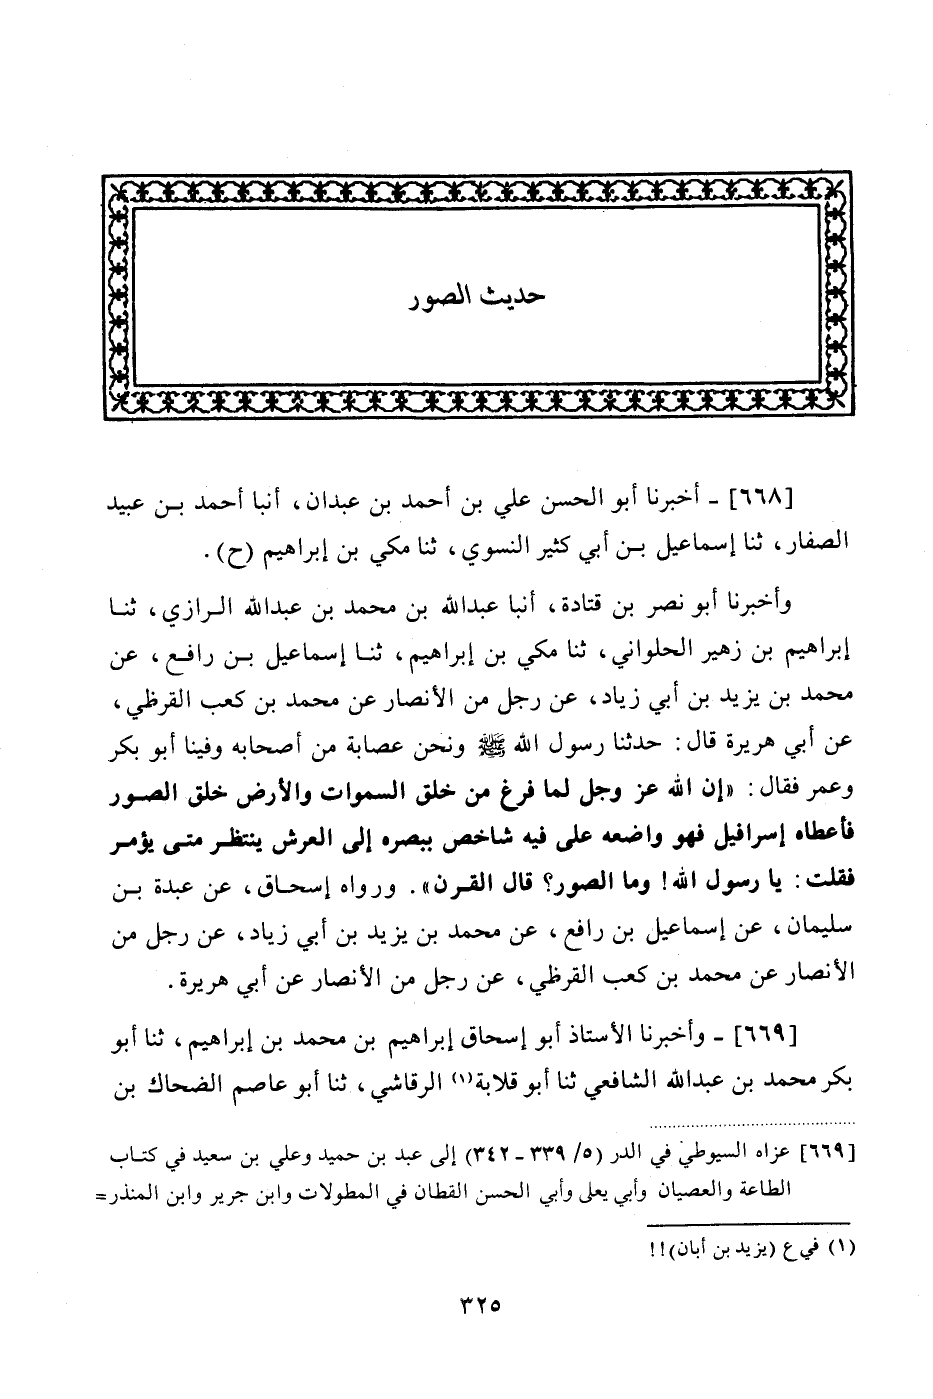 حديث الصور
[٦٦٨] ـ أخبرنا أبو الحسن علي بن أحمد بن عبدان، أنبا أحمد بـن عبيد
الصفار، ثنا إسماعيل بـن أبي كثير النسوي، ثنا مكي بن إبراهيم (ح).
وأخبرنا أبو نصر بن قتادة، أنبا عبدالله بن محمد بن عبدالله الـرازي، ثنـا
إبراهيم بن زهير الحلواني، ثنا مكي بن إبراهيم، ثنـا إسماعيل بـن رافـع، عن
محمد بن يزيد بن أبي زياد، عن رجل من الأنصار عن محمد بن كعب القرظي،
عن أبي هريرة قال: حدثنا رسول الله ﷺ ونحن عصابة من أصحابه وفينا أبو بكر
وعمر فقال: «إن الله عز وجل لما فرغ من خلق السموات والأرض خلق الصـور
فأعطاه إسرافيل فهو واضعه على فيه شاخص ببصره إلى العرش ينتظـر متـى يؤمـر
فقلت: يا رسول الله! وما الصور؟ قال القرن». ورواه إسحـاق، عن عبدة بـن
سليمان، عن إسماعيل بن رافع، عن محمد بن يزيد بن أبي زياد، عن رجل من
الأنصار عن محمد بن كعب القرظي، عن رجل من الأنصار عن أبي هريرة.
[٦٦٩] ـ وأخبرنا الأستاذ أبو إسحاق إبراهيم بن محمد بن إبراهيم، ثنا أبو
بكر محمد بن عبدالله الشافعي ثنا أبو قلابة(١) الرقاشي، ثنا أبو عاصم الضحاك بن
[٦٦٩] عزاه السيوطي في الدر (٥/ ٣٣٩ ـ ٣٤٢) إلى عبد بن حميد وعلي بن سعيد في كتـاب
الطاعة والعصيان وأبي يعلى وأبي الحسن القطان في المطولات وابن جرير وابن المنذر=
(١) في ع (يزيد بن أبان)!!
٣٢٥